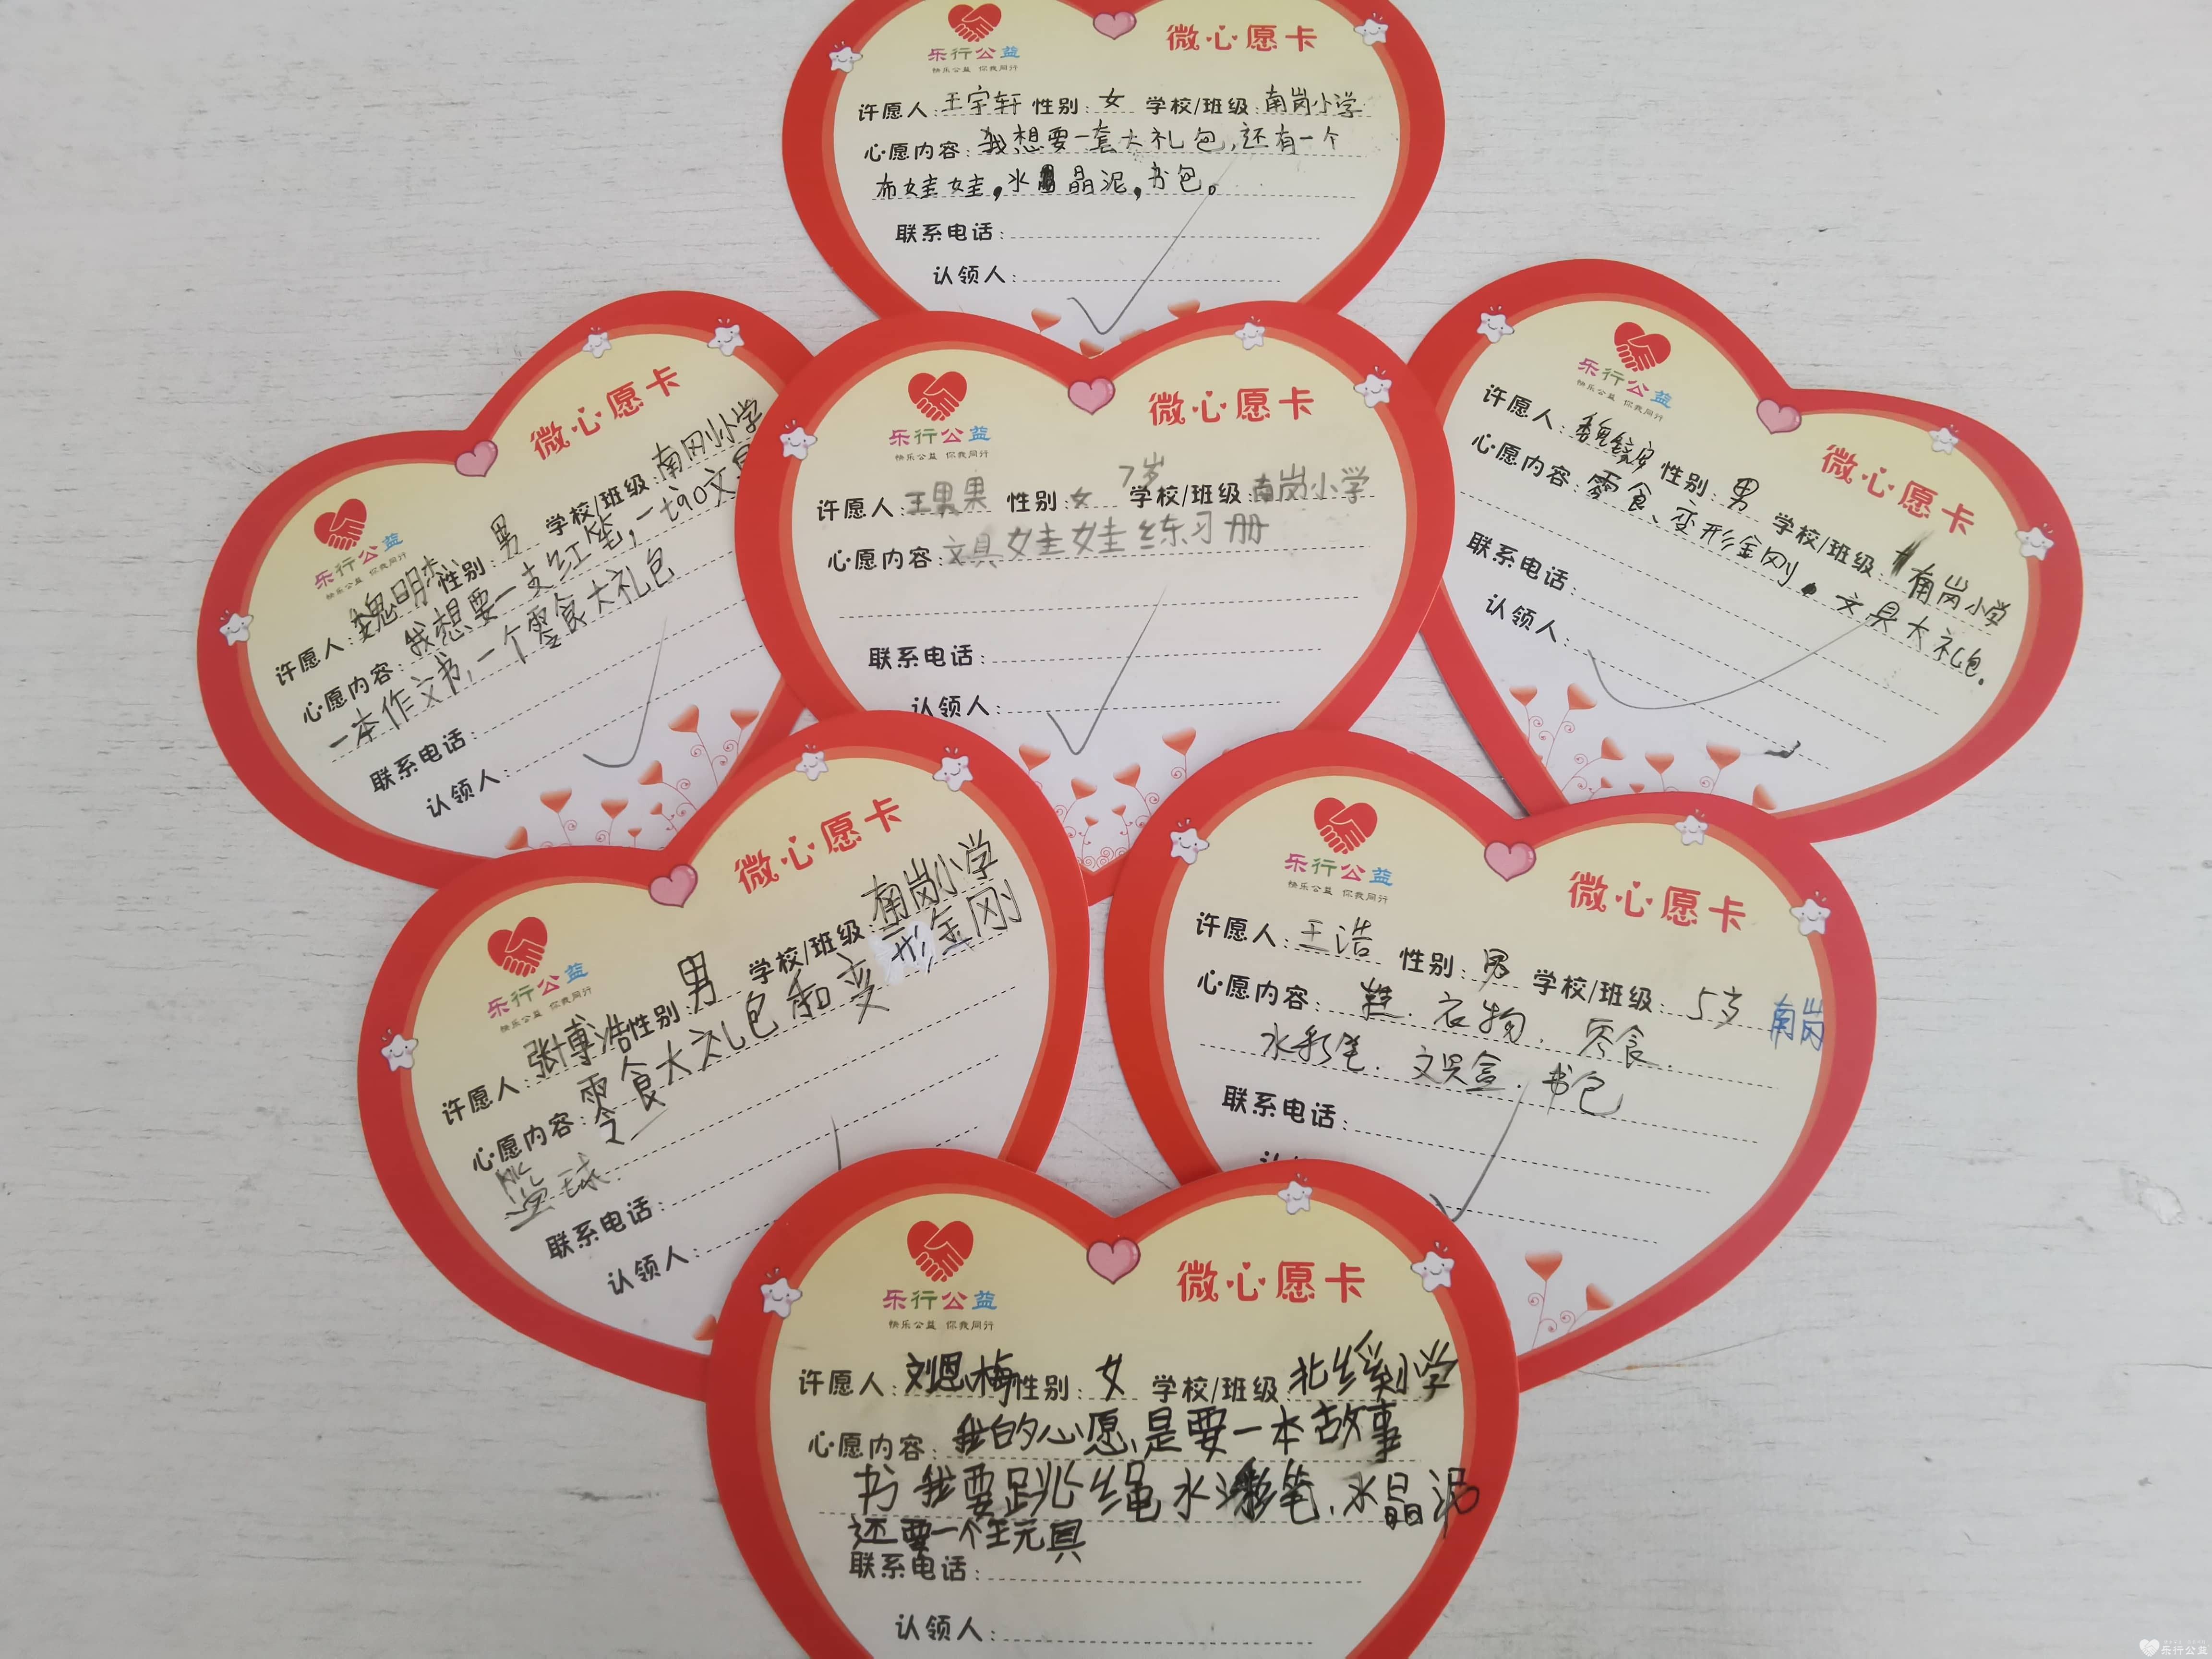 乐行公益
快乐公益 你我同行
微心愿卡
许愿人:王宇轩 性别:女 学校/班级:南岗小学
心愿内容:我想要一套大礼包,还有一个
布娃娃,水晶泥,书包。
联系电话:
认领人:
微心愿卡
乐行公益
快乐公益 你我同行
许愿人:魏明杰 性别:男 学校/班级:南刚小学
心愿内容:我想要一支红笔,一 文具
一本作文书,一个零食大礼包
联系电话:
认领人:
乐行公益
快乐公益 你我同行
微心愿卡
7岁
许愿人:王果果 性别:女 学校/班级:南岗小学
心愿内容:文具 娃娃 练习册
联系电话:
认领人:
乐行公益
快乐公益 你我同行
微心愿卡
许愿人:魏 性别:男 学校/班级:南岗小学
心愿内容:零食、变形金刚。文具大礼包.
联系电话:
认领人:
微心愿卡
乐行公益
快乐公益 你我同行
许愿人:张博浩 性别:男 学校/班级:南岗小学
心愿内容:零食大礼包和变形金刚
篮球.
联系电话:
认领人:
乐行公益
快乐公益 你我同行
微心愿卡
许愿人:王浩 性别:男 学校/班级:5岁 南岗
心愿内容:鞋.衣物.零食.
水彩笔.文具盒.书包
联系电话:
乐行公益
快乐公益 你我同行
微心愿卡
许愿人:刘恩梅 性别:女 学校/班级:北 小学
心愿内容:我的心愿、是要一本故事
书 我要跳绳 水彩笔.水晶泥
还要一个玩具
联系电话:
认领人:
乐行公益